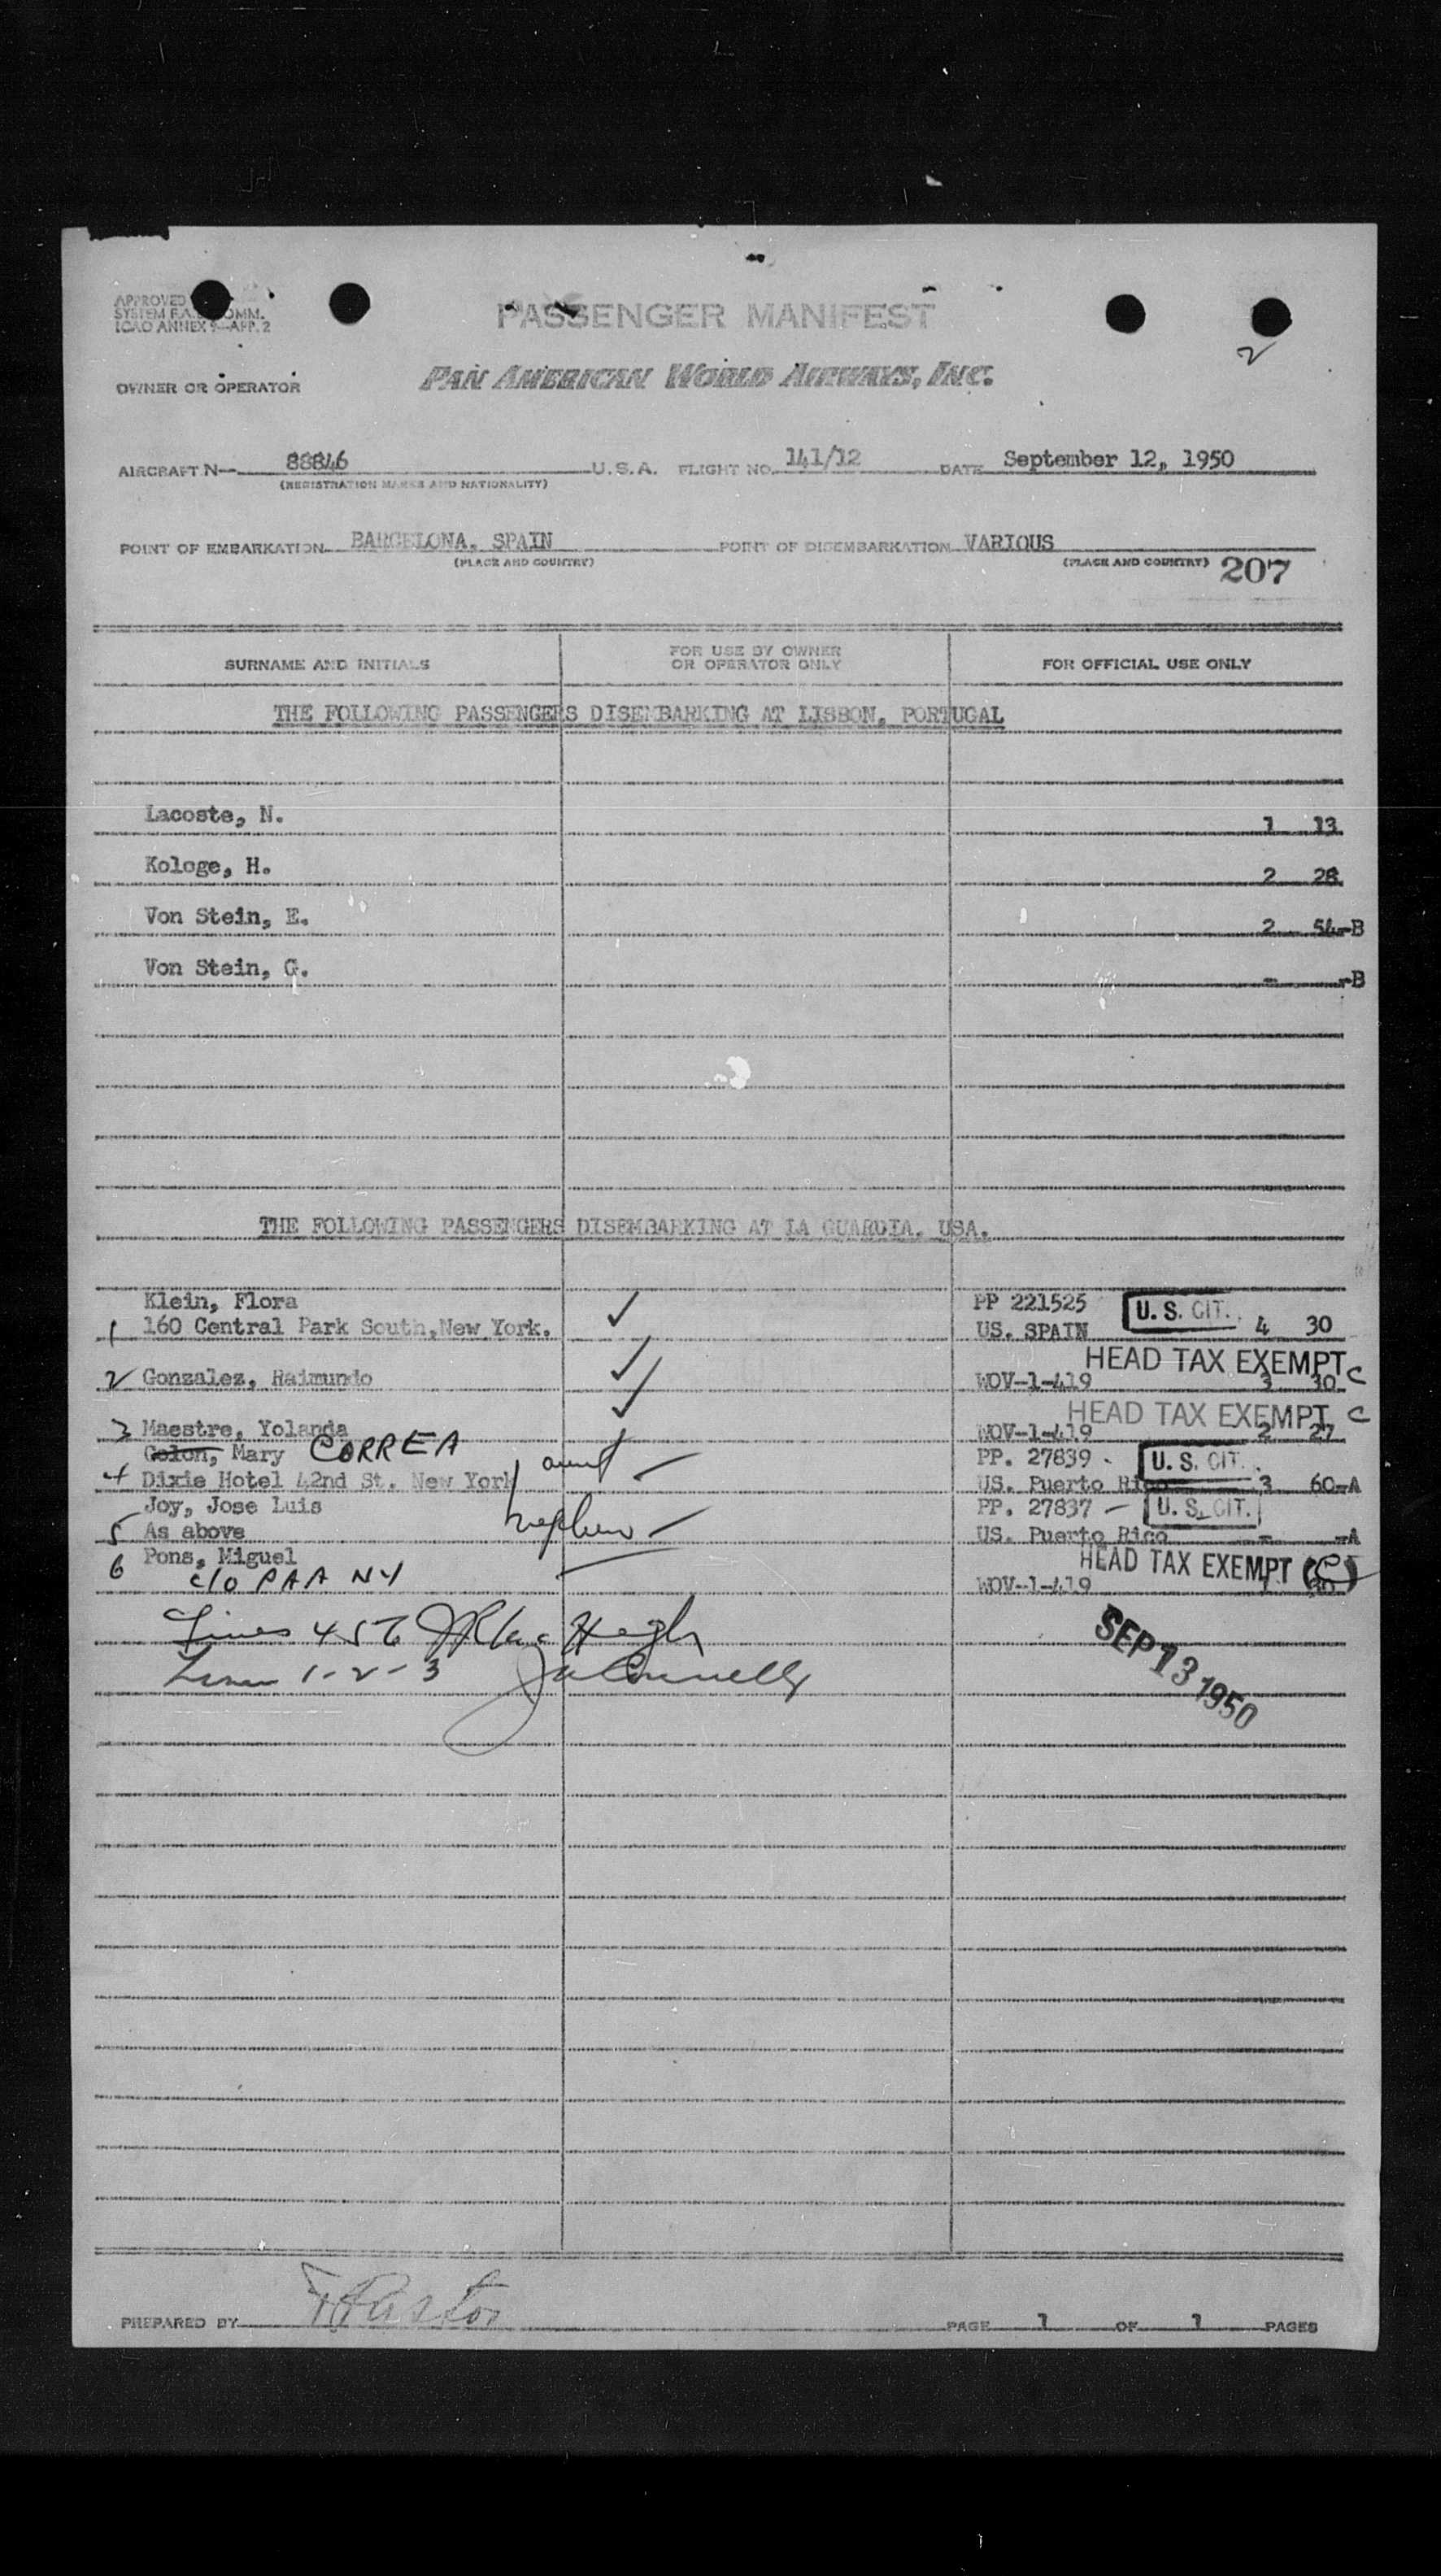 APPROVED
SYSTEM F.A.L. COMM.
ICAO ANNEX 9—APP. 2
PASSENGER MANIFEST
2
OWNER OR OPERATOR
PAN AMERICAN WORLD AIRWAYS, INC.
AIRCRAFT N— 88846 U.S.A. FLIGHT NO. 141/12 DATE September 12, 1950
(REGISTRATION MARKS AND NATIONALITY)
POINT OF EMBARKATION BARCELONA, SPAIN POINT OF DISEMBARKATION VARIOUS
(PLACE AND COUNTRY) (PLACE AND COUNTRY) 207
SURNAME AND INITIALS FOR USE BY OWNER OR OPERATOR ONLY FOR OFFICIAL USE ONLY
THE FOLLOWING PASSENGERS DISEMBARKING AT LISBON, PORTUGAL
Lacoste, N. 1 13
Kologe, H. 2 28
Von Stein, E. 2 54-B
Von Stein, G. - -B
THE FOLLOWING PASSENGERS DISEMBARKING AT LA GUARDIA, USA.
Klein, Flora PP 221525 U.S. CIT.
1 160 Central Park South, New York. US. SPAIN 4 30
HEAD TAX EXEMPT
2 Gonzalez, Raimundo WOV-1-419 3 30 C
HEAD TAX EXEMPT C
3 Maestre, Yolanda WOV-1-419 2 27
Colon, Mary CORREA aunt PP. 27839 U.S. CIT.
4 Dixie Hotel 42nd St. New York US. Puerto Rico 3 60-A
Joy, Jose Luis nephew PP. 27837 U.S. CIT.
5 As above US. Puerto Rico - -A
6 Pons, Miguel HEAD TAX EXEMPT (C)
c/o PAA NY WOV-1-419 30
Lines 4 5 6
Lines 1-2-3
SEP 13 1950
PREPARED BY Pastor PAGE 1 OF 1 PAGES